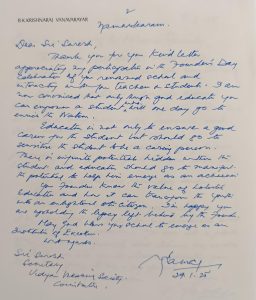 2
B.K.KRISHNARAJ VANAVARAYAR
Namaskaram.
Dear Sri Suresh,
Thank you for your kind letter
appreciating my participation in the Founder's Day
Celebration of your renowned school and
interacting with your teachers & students. I am
now convinced that only through good education you
can empower a student, who one day go to
enrich the Nation.
Education is not only to ensure a good
career for the student but should go to
sensitise the student to be a caring person.
There is infinite potential hidden within the
student and education should go to manifest
the potential to help him emerge as an achiever
Your Founder knew the value of holistic
Education and how it can transform the youth
into an enlightened citizen. I'm happy you
are upholding the legacy left behind by the Founder
May God bless your school to emerge as an
Institute of Excellence.
Kind regards,
Sri Suresh
Secretary
Society
Coimbatore.
29.1.25